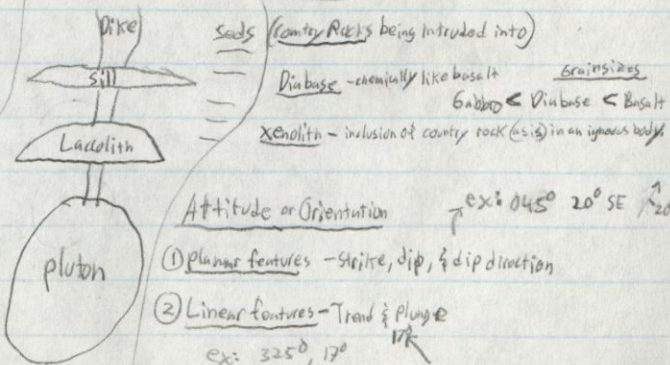 Dike
Sill
Laccolith
pluton
seds (Country Rocks being intruded into)
Diabase - chemically like basalt
Grainsizes
Gabbro < Diabase < Basalt
Xenolith - inclusion of country rock (as is) in an igneous body.
Attitude or Orientation
ex: 045° 20° SE
20
① planar features - strike, dip, & dip direction
② Linear features - Trend & plunge
17°
ex: 325°, 17°